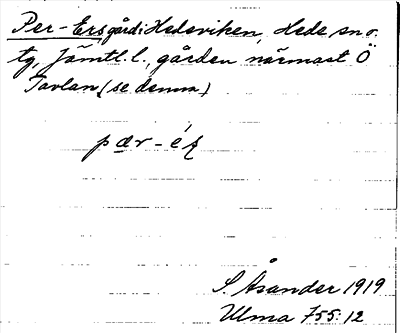 Per-Ersgård i Hedeviken, Hede sn o.
tg, Jämtl. l., gården närmast Ö
Tavlan (se denna)
pær-éʂ
S. Åsander 1919
Ulma 755:12